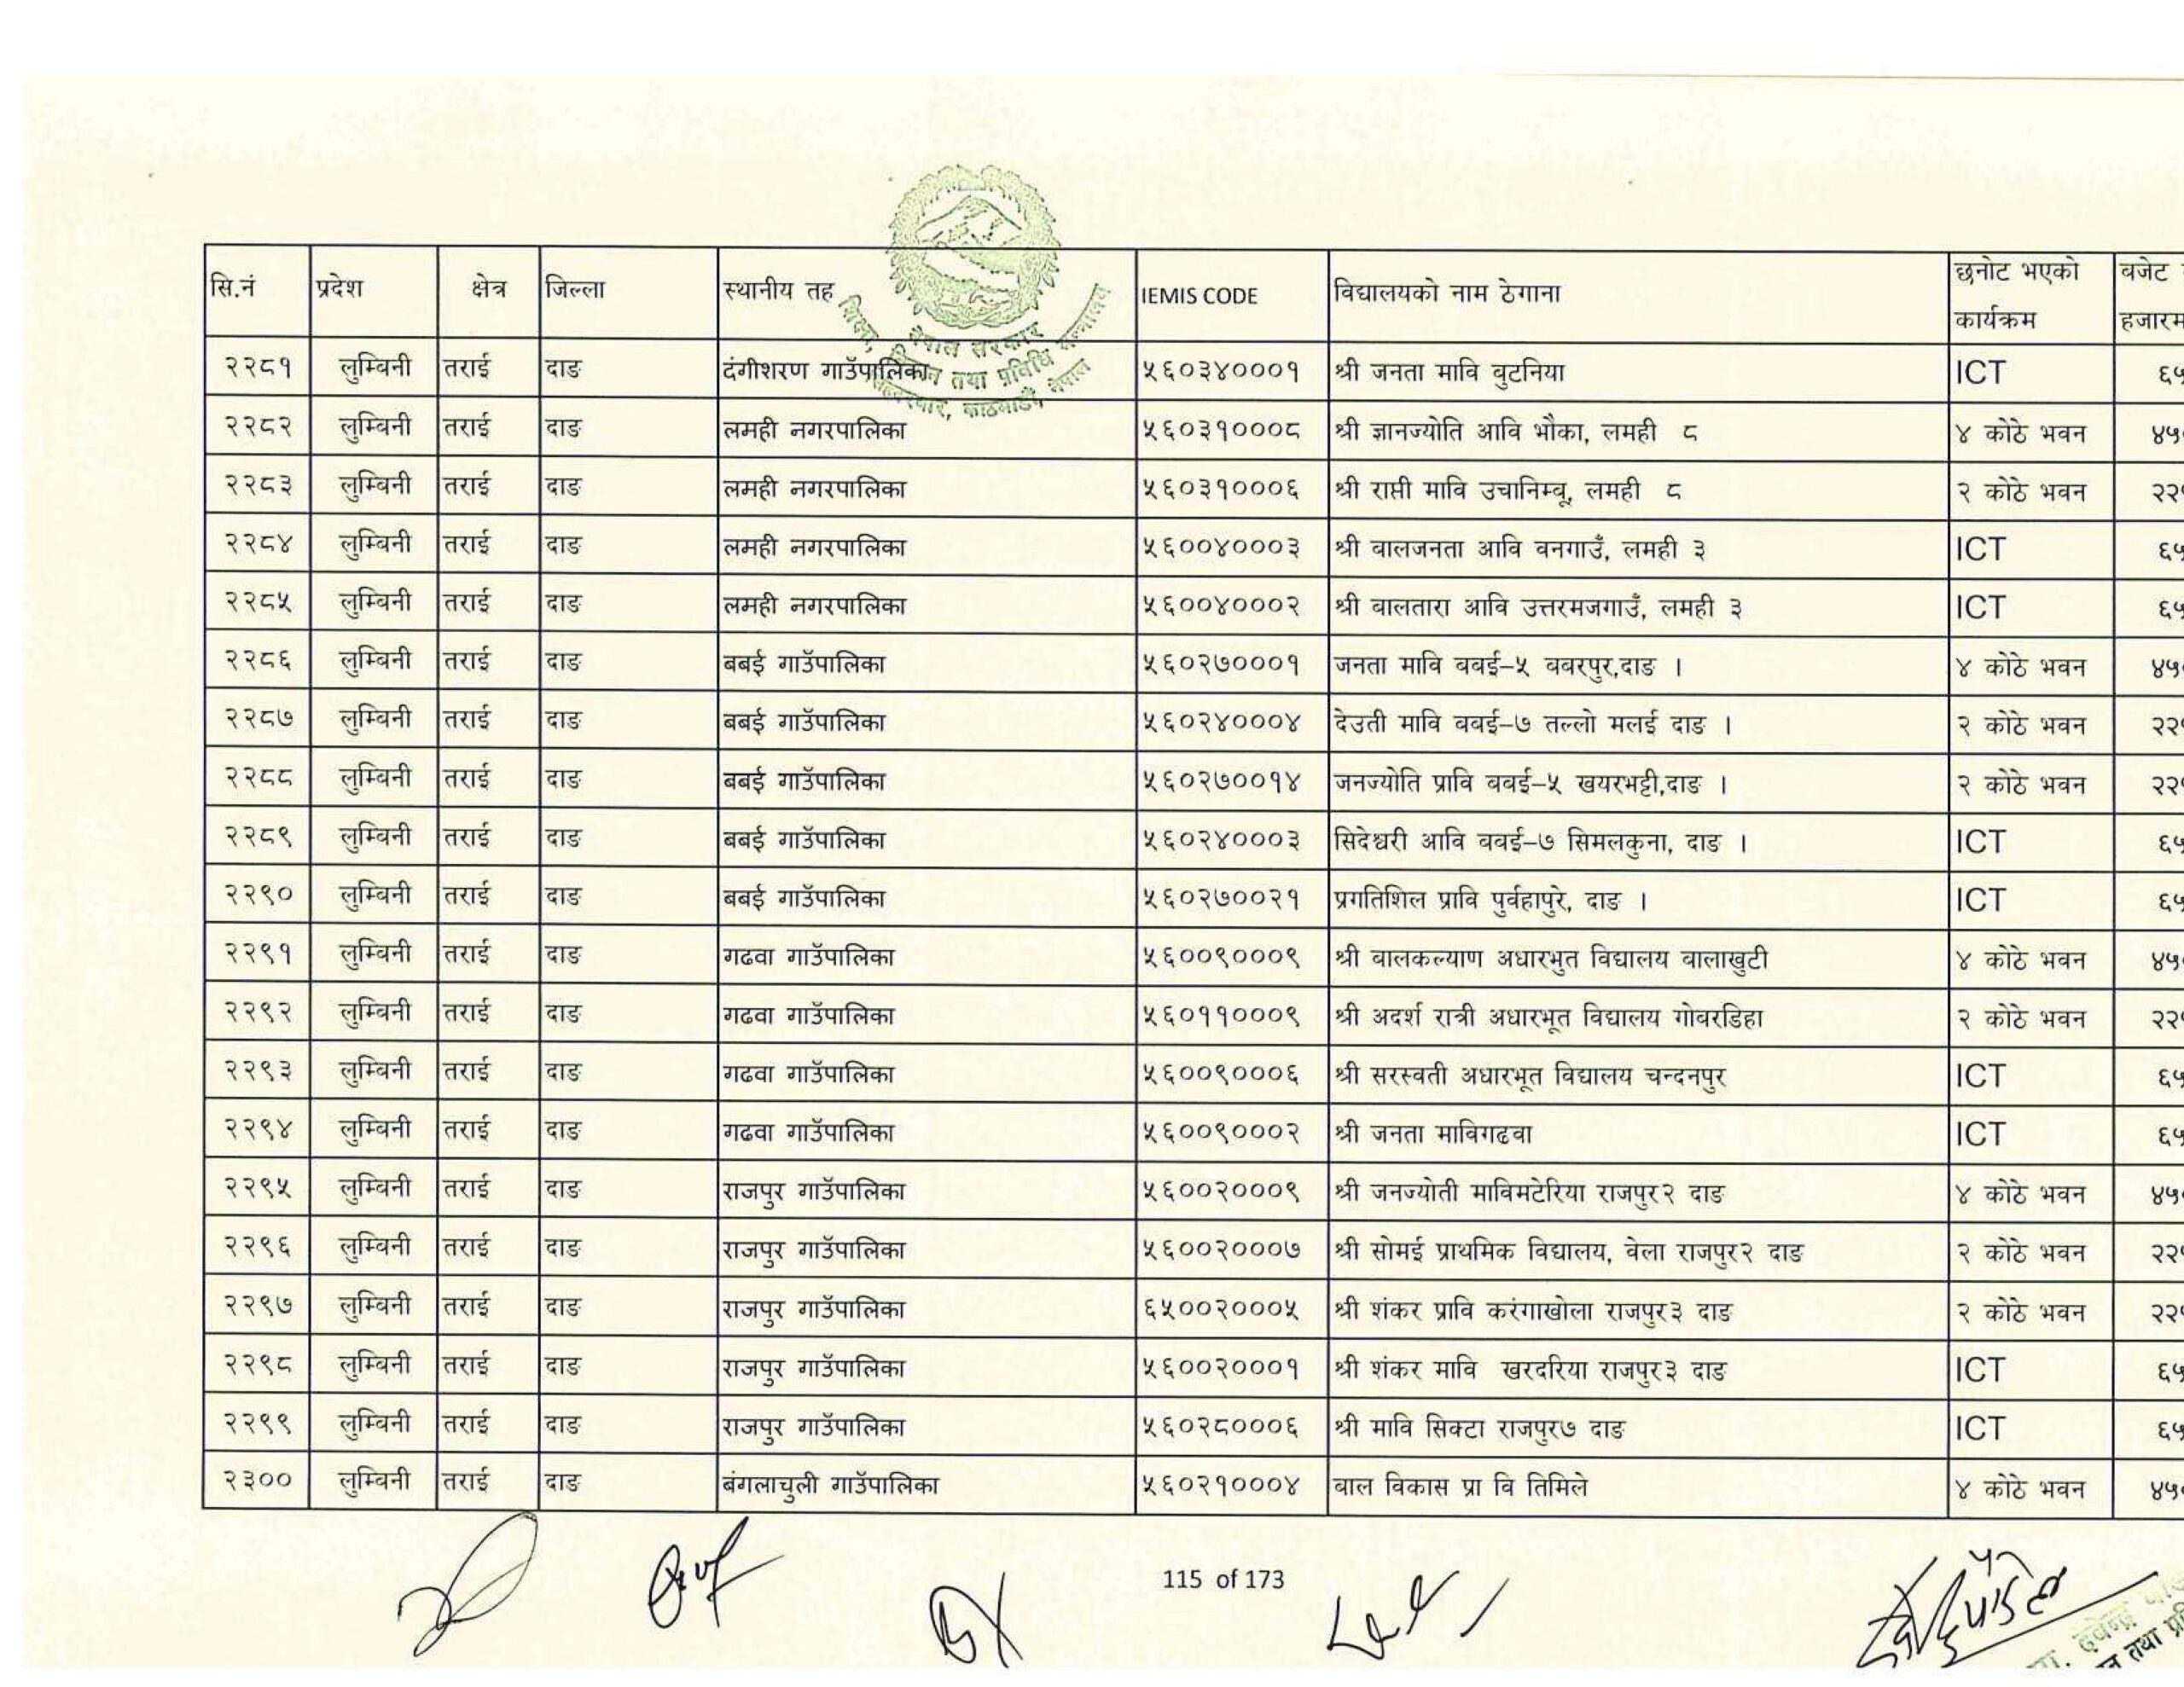 सि.नं प्रदेश क्षेत्र जिल्ला स्थानीय तह IEMIS CODE विद्यालयको नाम ठेगाना छनोट भएको कार्यक्रम बजेट
नेपाल सरकार
२२८१ लुम्बिनी तराई दाङ दंगीशरण गाउँपालिका ५६०३४०००१ श्री जनता मावि बुटनिया ICT
२२८२ लुम्बिनी तराई दाङ लमही नगरपालिका ५६०३१०००८ श्री ज्ञानज्योति आवि भौका, लमही ८ ४ कोठे भवन
२२८३ लुम्बिनी तराई दाङ लमही नगरपालिका ५६०३१०००६ श्री राप्ती मावि उचानिम्बू, लमही ८ २ कोठे भवन
२२८४ लुम्बिनी तराई दाङ लमही नगरपालिका ५६००४०००३ श्री बालजनता आवि वनगाउँ, लमही ३ ICT
२२८५ लुम्बिनी तराई दाङ लमही नगरपालिका ५६००४०००२ श्री बालतारा आवि उत्तरमजगाउँ, लमही ३ ICT
२२८६ लुम्बिनी तराई दाङ बबई गाउँपालिका ५६०२७०००१ जनता मावि बबई–५ बबरपुर,दाङ । ४ कोठे भवन
२२८७ लुम्बिनी तराई दाङ बबई गाउँपालिका ५६०२४०००४ देउती मावि बबई–७ तल्लो मलई दाङ । २ कोठे भवन
२२८८ लुम्बिनी तराई दाङ बबई गाउँपालिका ५६०२७००१४ जनज्योति प्रावि बबई–५ खयरभट्टी,दाङ । २ कोठे भवन
२२८९ लुम्बिनी तराई दाङ बबई गाउँपालिका ५६०२४०००३ सिदेश्वरी आवि बबई–७ सिमलकुना, दाङ । ICT
२२९० लुम्बिनी तराई दाङ बबई गाउँपालिका ५६०२७००२१ प्रगतिशिल प्रावि पुर्वहापुरे, दाङ । ICT
२२९१ लुम्बिनी तराई दाङ गढवा गाउँपालिका ५६००९०००९ श्री बालकल्याण अधारभुत विद्यालय बालाखुटी ४ कोठे भवन
२२९२ लुम्बिनी तराई दाङ गढवा गाउँपालिका ५६०११०००९ श्री अदर्श रात्री अधारभूत विद्यालय गोबरडिहा २ कोठे भवन
२२९३ लुम्बिनी तराई दाङ गढवा गाउँपालिका ५६००९०००६ श्री सरस्वती अधारभूत विद्यालय चन्दनपुर ICT
२२९४ लुम्बिनी तराई दाङ गढवा गाउँपालिका ५६००९०००२ श्री जनता माविगढवा ICT
२२९५ लुम्बिनी तराई दाङ राजपुर गाउँपालिका ५६००२०००९ श्री जनज्योती माविमटेरिया राजपुर२ दाङ ४ कोठे भवन
२२९६ लुम्बिनी तराई दाङ राजपुर गाउँपालिका ५६००२०००७ श्री सोमई प्राथमिक विद्यालय, वेला राजपुर२ दाङ २ कोठे भवन
२२९७ लुम्बिनी तराई दाङ राजपुर गाउँपालिका ६५००२०००५ श्री शंकर प्रावि करंगाखोला राजपुर३ दाङ २ कोठे भवन
२२९८ लुम्बिनी तराई दाङ राजपुर गाउँपालिका ५६००२०००१ श्री शंकर मावि खरदरिया राजपुर३ दाङ ICT
२२९९ लुम्बिनी तराई दाङ राजपुर गाउँपालिका ५६०२८०००६ श्री मावि सिक्टा राजपुर७ दाङ ICT
२३०० लुम्बिनी तराई दाङ बंगलाचुली गाउँपालिका ५६०२१०००४ बाल विकास प्रा वि तिमिले ४ कोठे भवन
115 of 173